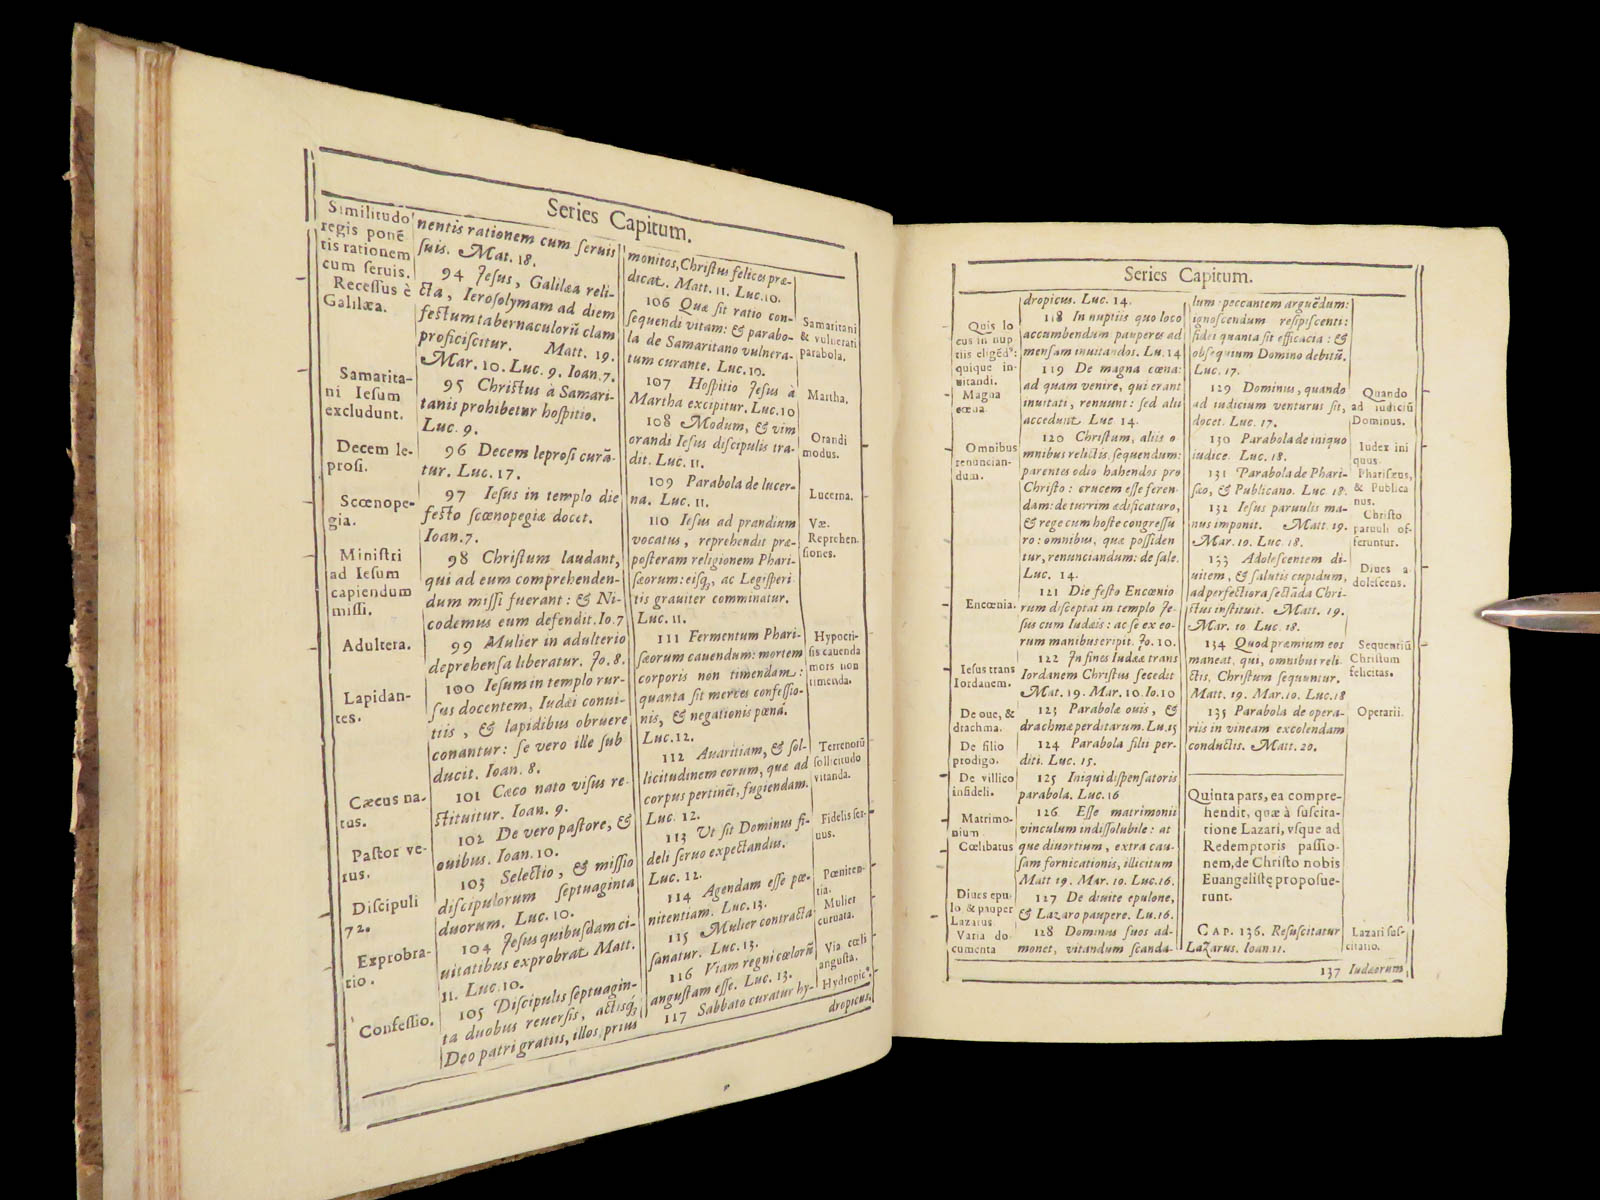 Series Capitum.
Similitudo
regis ponē
tis rationem
cum seruis.
Recessus è
Galilæa.
Samarita-
ni Iesum
excludunt.
Decem le-
prosi.
Scœnope-
gia.
Ministri
ad Iesum
capiendum
missi.
Adultera.
Lapidan-
tes.
Cæcus na-
tus.
Pastor ve-
rus.
Discipuli
72.
Exprobra-
tio.
Confessio.
nentis rationem cum seruis
suis. Mat. 18.
94 Jesus, Galilæa reli-
cta, Ierosolymam ad diem
festum tabernaculorū clam
proficiscitur. Matt. 19.
Mar. 10. Luc. 9. Ioan. 7.
95 Christus à Samari-
tanis prohibetur hospitio.
Luc. 9.
96 Decem leprosi curā-
tur. Luc. 17.
97 Iesus in templo die
festo scœnopegiæ docet.
Ioan. 7.
98 Christum laudant,
qui ad eum comprehenden-
dum missi fuerant: & Ni-
codemus eum defendit. Io. 7
99 Mulier in adulterio
deprehensa liberatur. Jo. 8.
100 Iesum in templo rur-
sus docentem, Iudæi conui-
tiis, & lapidibus obruere
conantur: se vero ille sub
ducit. Ioan. 8.
101 Cæco nato visus re-
stituitur. Ioan. 9.
102 De vero pastore, &
ouibus. Ioan. 10.
103 Selectio, & missio
discipulorum septuaginta
duorum. Luc. 10.
104 Jesus quibusdam ci-
uitatibus exprobrat. Matt.
11. Luc. 10.
105 Discipulis septuagin-
ta duobus reuersis, actisq́;
Deo patri gratiis, illos, prius
monitos, Christus felices præ-
dicat. Matt. 11. Luc. 10.
106 Quæ sit ratio con-
sequendi vitam: & parabo-
la de Samaritano vulnera-
tum curante. Luc. 10.
107 Hospitio Jesus à
Martha excipitur. Luc. 10
108 Modum, & vim
orandi Iesus discipulis tra-
dit. Luc. 11.
109 Parabola de lucer-
na. Luc. 11.
110 Iesus ad prandium
vocatus, reprehendit præ-
posteram religionem Phari-
sæorum: eisq́;, ac Legisperi
tis grauiter comminatur.
Luc. 11.
111 Fermentum Phari-
sæorum cauendum: mortem
corporis non timendam:
quanta sit merces confessio-
nis, & negationis pœna.
Luc. 12.
112 Auaritiam, & sol-
licitudinem eorum, quæ ad
corpus pertinēt, fugiendam.
Luc. 12.
113 Vt sit Dominus fi-
deli seruo expectandus.
Luc. 12.
114 Agendam esse pœ-
nitentiam. Luc. 13.
115 Mulier contracta
sanatur. Luc. 13.
116 Viam regni cœlorū
angustam esse. Luc. 13.
117 Sabbato curatur hy-
dropicus.
Samaritani
& vulnerati
parabola.
Martha.
Orandi
modus.
Lucerna.
Væ.
Reprehen
siones.
Hypocri-
sis cauenda
mors non
timenda.
Terrenorū
sollicitudo
vitanda.
Fidelis ser-
uus.
Pœniten-
tia.
Mulier
curuata.
Via cœli
angusta.
Hydropic⁹.
Series Capitum.
Quis lo
cus in nup
tiis eligēd⁹:
quique in-
uitandi.
Magna
cœna.
Omnibus
renuncian-
dum.
Encœnia.
Iesus trans
Iordanem.
De oue, &
drachma.
De filio
prodigo.
De villico
infideli.
Matrimo-
nium
Cœlibatus
Diues epu-
lo, & pauper
Lazarus
Varia do
cumenta
dropicus. Luc. 14.
118 In nuptiis quo loco
accumbendum pauperes ad
mensam inuitandos. Lu. 14
119 De magna cœna:
ad quam venire, qui erant
inuitati, renuunt: sed alii
accedunt. Luc. 14.
120 Christum, aliis o
mnibus relictis, sequendum:
parentes odio habendos pro
Christo: crucem esse feren
dam: de turrim ædificaturo,
& rege cum hoste congressu
ro: omnibus, quæ possiden
tur, renunciandum: de sale.
Luc. 14.
121 Die festo Encænio
rum disceptat in templo Je-
sus cum Iudæis: ac se ex eo-
rum manibus eripit. Jo. 10.
122 Jn fines Iudææ trans
Iordanem Christus secedit
Mat. 19. Mar. 10. Io. 10
123 Parabolæ ouis, &
drachmæ perditarum. Lu. 15
124 Parabola filii per-
diti. Luc. 15.
125 Iniqui dispensatoris
parabola. Luc. 16
126 Esse matrimonii
vinculum indissolubile: at
que diuortium, extra cau-
sam fornicationis, illicitum
Matt 19. Mar. 10. Luc. 16.
127 De diuite epulone,
& Lazaro paupere. Lu. 16.
128 Dominus suos ad-
monet, vitandum scanda-
lum: peccantem arguēdum:
ignoscendum resipiscenti:
fidei quanta sit efficacia: &
obsequium Domino debitū.
Luc. 17.
129 Dominus, quando
ad iudicium venturus sit,
docet. Luc. 17.
130 Parabola de iniquo
iudice. Luc. 18.
131 Parabola de Phari-
sæo, & Publicano. Luc 18.
132 Iesus paruulis ma-
nus imponit. Matt. 19.
Mar. 10. Luc. 18.
133 Adolescentem di-
uitem, & salutis cupidum,
ad perfectiora sectāda Chri-
stus instituit. Matt. 19.
Mar. 10. Luc. 18.
134 Quod præmium eos
maneat, qui, omnibus reli-
ctis, Christum sequuntur.
Matt. 19. Mar. 10. Luc. 18
135 Parabola de opera-
riis in vineam excolendam
conductis. Matt. 20.
Quinta pars, ea compre-
hendit, quæ à suscita-
tione Lazari, vsque ad
Redemptoris passio-
nem, de Christo nobis
Euangelistę proposue-
runt.
CAP. 136. Resuscitatur
Lazarus. Ioan 11.
137 Iudæorum
Quando
ad iudiciū
Dominus.
Iudex ini
quus.
Pharisæus,
& Publica
nus.
Christo
paruuli of-
feruntur.
Diues a
dolescens.
Sequentiū
Christum
felicitas.
Operarii.
Lazari sus-
citatio.